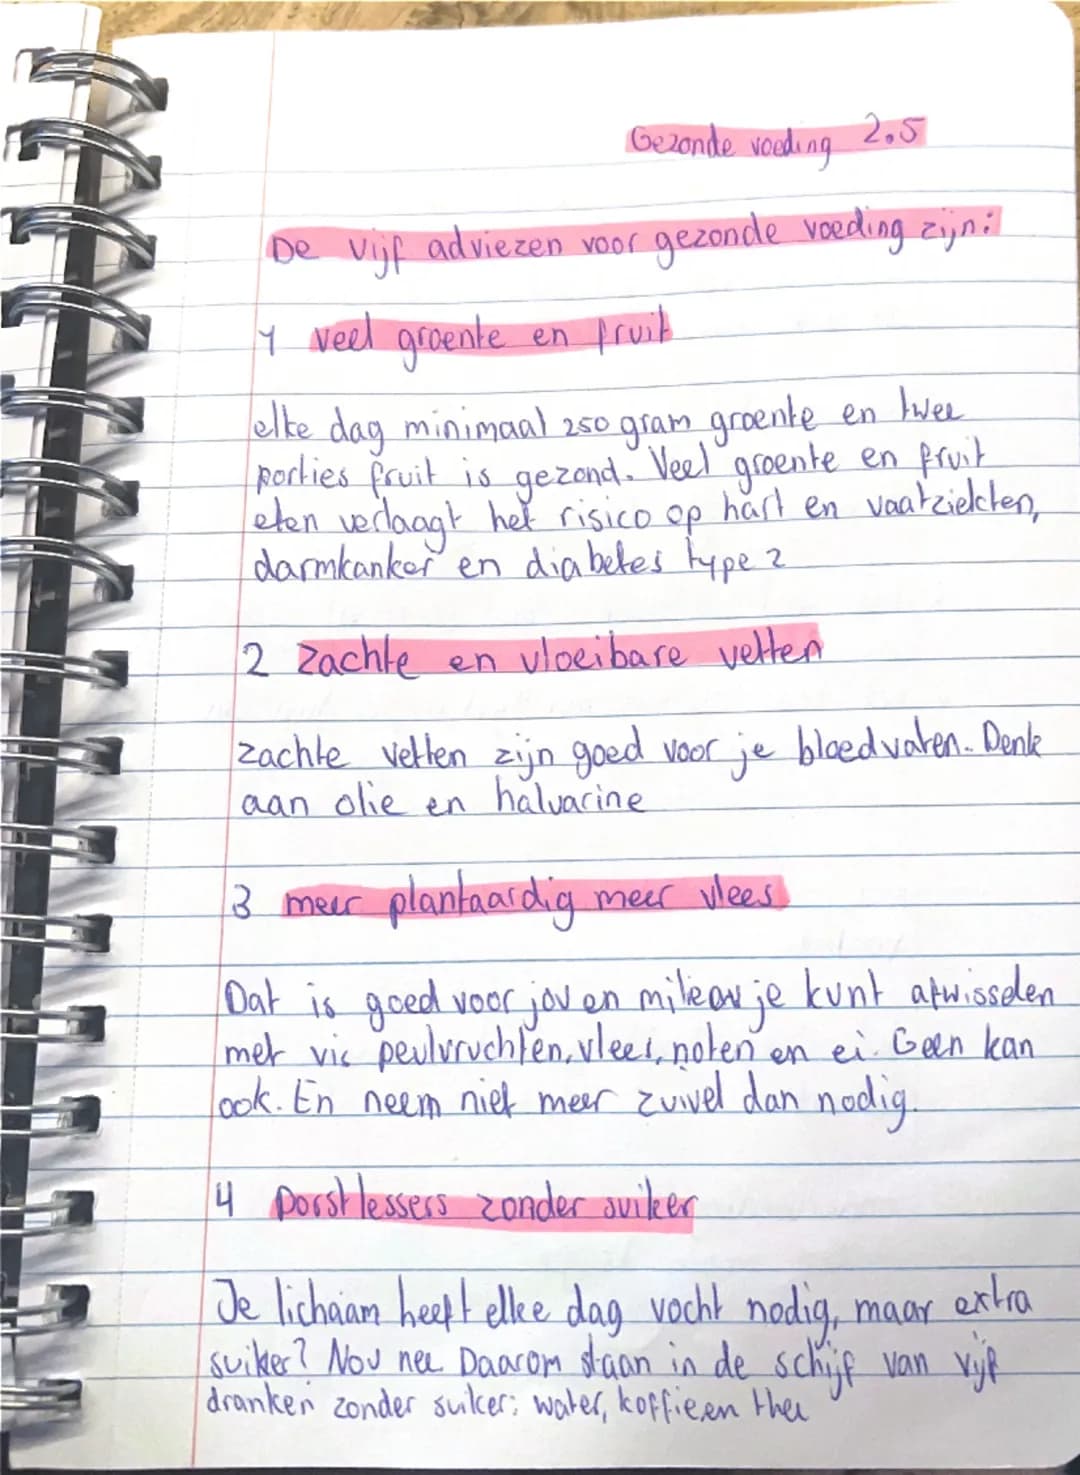 Gezonde voeding 2.5
De vijf adviezen voor gezonde voeding zijn:
1 veel groente en fruit
elke dag minimaal 250 gram groente en twee
porties fruit is gezond. Veel groente en fruit
eten verlaagt het risico op hart en vaatziekten,
darmkanker en diabetes type 2
2 Zachte en vloeibare vetten
zachte vetten zijn goed voor je bloedvaten. Denk
aan olie en halvarine
3 meer plantaardig meer vlees
Dat is goed voor jou en milieu je kunt afwisselen
met vis peulvruchten, vlees, noten en ei. Geen kan
ook. En neem niet meer zuivel dan nodig.
4 Dorstlessers zonder suiker
Je lichaam heeft elke dag vocht nodig, maar extra
suiker? Nou nee Daarom staan in de schijf van vijf
dranken zonder suiker: water, koffie en thee